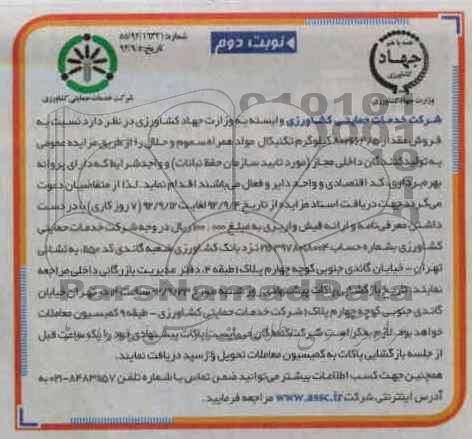 نوبت دوم
شماره: ۵۵/۹۲/۱۶۳۲۱
تاریخ: ۹۲/۹/۵
همه با هم
جهاد
کشاورزی
وزارت جهاد کشاورزی
شرکت خدمات حمایتی کشاورزی
شرکت خدمات حمایتی کشاورزی وابسته به وزارت جهاد کشاورزی در نظر دارد نسبت به
فروش مقدار کیلوگرم تکنیکال مولد همراه سموم و حلال را از طریق مزایده عمومی
به تولیدکنندگان داخلی مجاز (مورد تایید سازمان حفظ نباتات) و واجد شرایط که دارای پروانه
بهره برداری، کد اقتصادی و واحد دایر و فعال می‌باشند اقدام نماید. لذا از متقاضیان دعوت
می‌گردد جهت دریافت اسناد مزایده از تاریخ ۹۲/۹/۴ لغایت ۹۲/۹/۱۲ (۷ روز کاری) با در دست
داشتن معرفی‌نامه و ارائه فیش واریزی به مبلغ ریال در وجه شرکت خدمات حمایتی
کشاورزی بشماره حساب نزد بانک کشاورزی شعبه گاندی کد به نشانی
تهران - خیابان گاندی جنوبی کوچه چهارم پلاک ۱ طبقه ۴، دفتر مدیریت بازرگانی داخلی مراجعه
نمایند. تاریخ بازگشایی پاکات پیشنهادی روز شنبه مورخ ساعت تهران خیابان
گاندی جنوبی کوچه چهارم پلاک ۱ شرکت خدمات حمایتی کشاورزی - طبقه ۹ کمیسیون معاملات
خواهد بود. لازم بذکر است شرکت‌کنندگان می‌بایست پاکات پیشنهادی خود را یک ساعت قبل
از جلسه بازگشایی پاکات به کمیسیون معاملات تحویل و رسید دریافت نمایند.
همچنین جهت کسب اطلاعات بیشتر می‌توانید ضمن تماس با شماره تلفن ۸۴۸۳۱۱۵۷-۰۲۱ به
آدرس اینترنتی شرکت www.assc.ir مراجعه فرمایید.
ParsNamadData